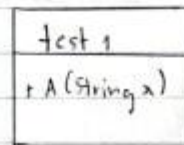 test 1
+ A (String x)